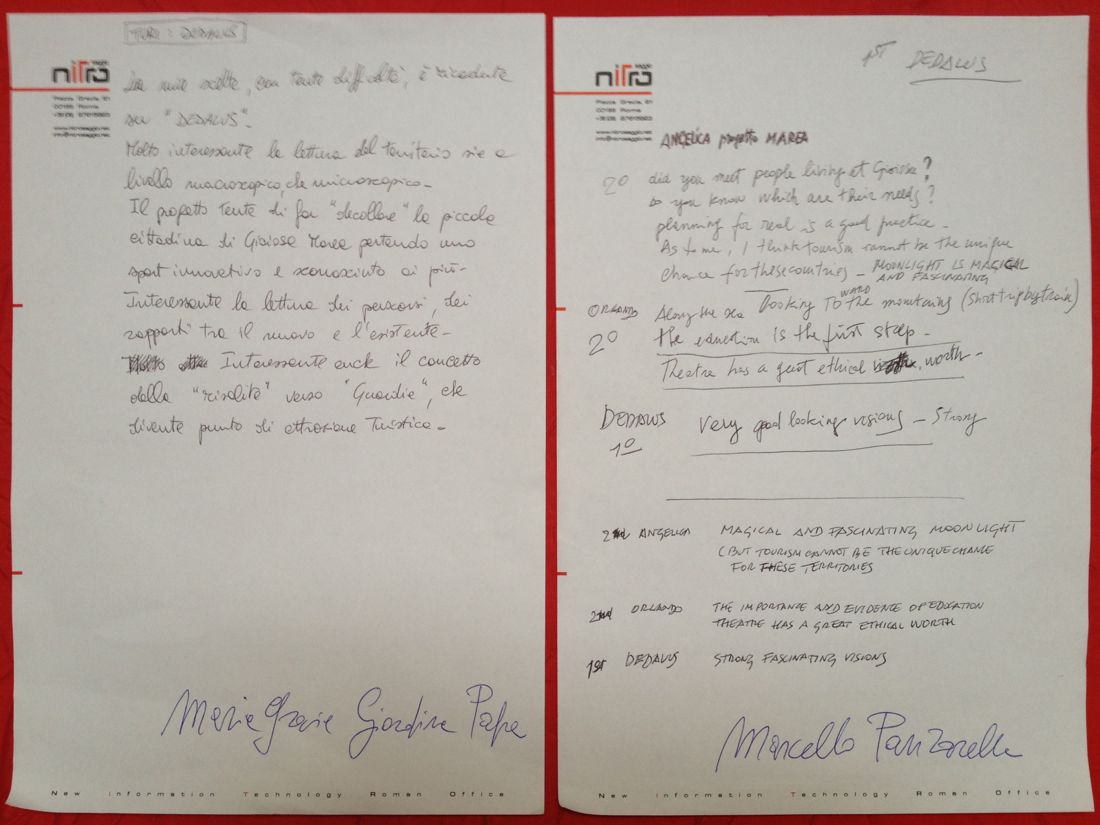 TURI : DEDALUS
nITro
saggio
Piazza Grecia, 61
00196 Roma
www.nitrosaggio.net
info@nitrosaggio.net
La mia scelta, con tante difficoltà, è ricadente
su "DEDALUS".
Molto interessante la lettura del territorio sia a
livello macroscopico, che microscopico-
Il progetto tenta di far "decollare" la piccola
cittadina di Gioiosa Marea portando uno
sport innovativo e sconosciuto ai più-
Interessante la lettura dei percorsi, dei
rapporti tra il nuovo e l'esistente-
Interessante anche il concetto
della "risalita" verso "Guardia", che
diventa punto di attrazione turistica-
Maria Grazia Giordina Papa
New Information Technology Roman Office
1ST DEDALUS
nITro
saggio
Piazza Grecia, 61
00196 Roma
www.nitrosaggio.net
info@nitrosaggio.net
ANGELICA progetto MAREA
2° did you meet people living at Gioiosa?
Do you know which are their needs?
planning for real is a good practice-
As to me, I think tourism cannot be the unique
chance for these countries- MOONLIGHT IS MAGICAL
AND FASCINATING
ORLANDO Along the sea looking TOWARD the mountains (short trip by train)
2° the education is the first step-
Theatre has a great ethical worth-
DEDALUS Very good looking visions - Strong
1°
2nd ANGELICA MAGICAL AND FASCINATING MOONLIGHT
(BUT TOURISM CANNOT BE THE UNIQUE CHANCE
FOR THESE TERRITORIES
2nd ORLANDO THE IMPORTANCE AND EVIDENCE OF EDUCATION
THEATRE HAS A GREAT ETHICAL WORTH
1ST DEDALUS STRONG FASCINATING VISIONS
Marcello Panzarella
New Information Technology Roman Office